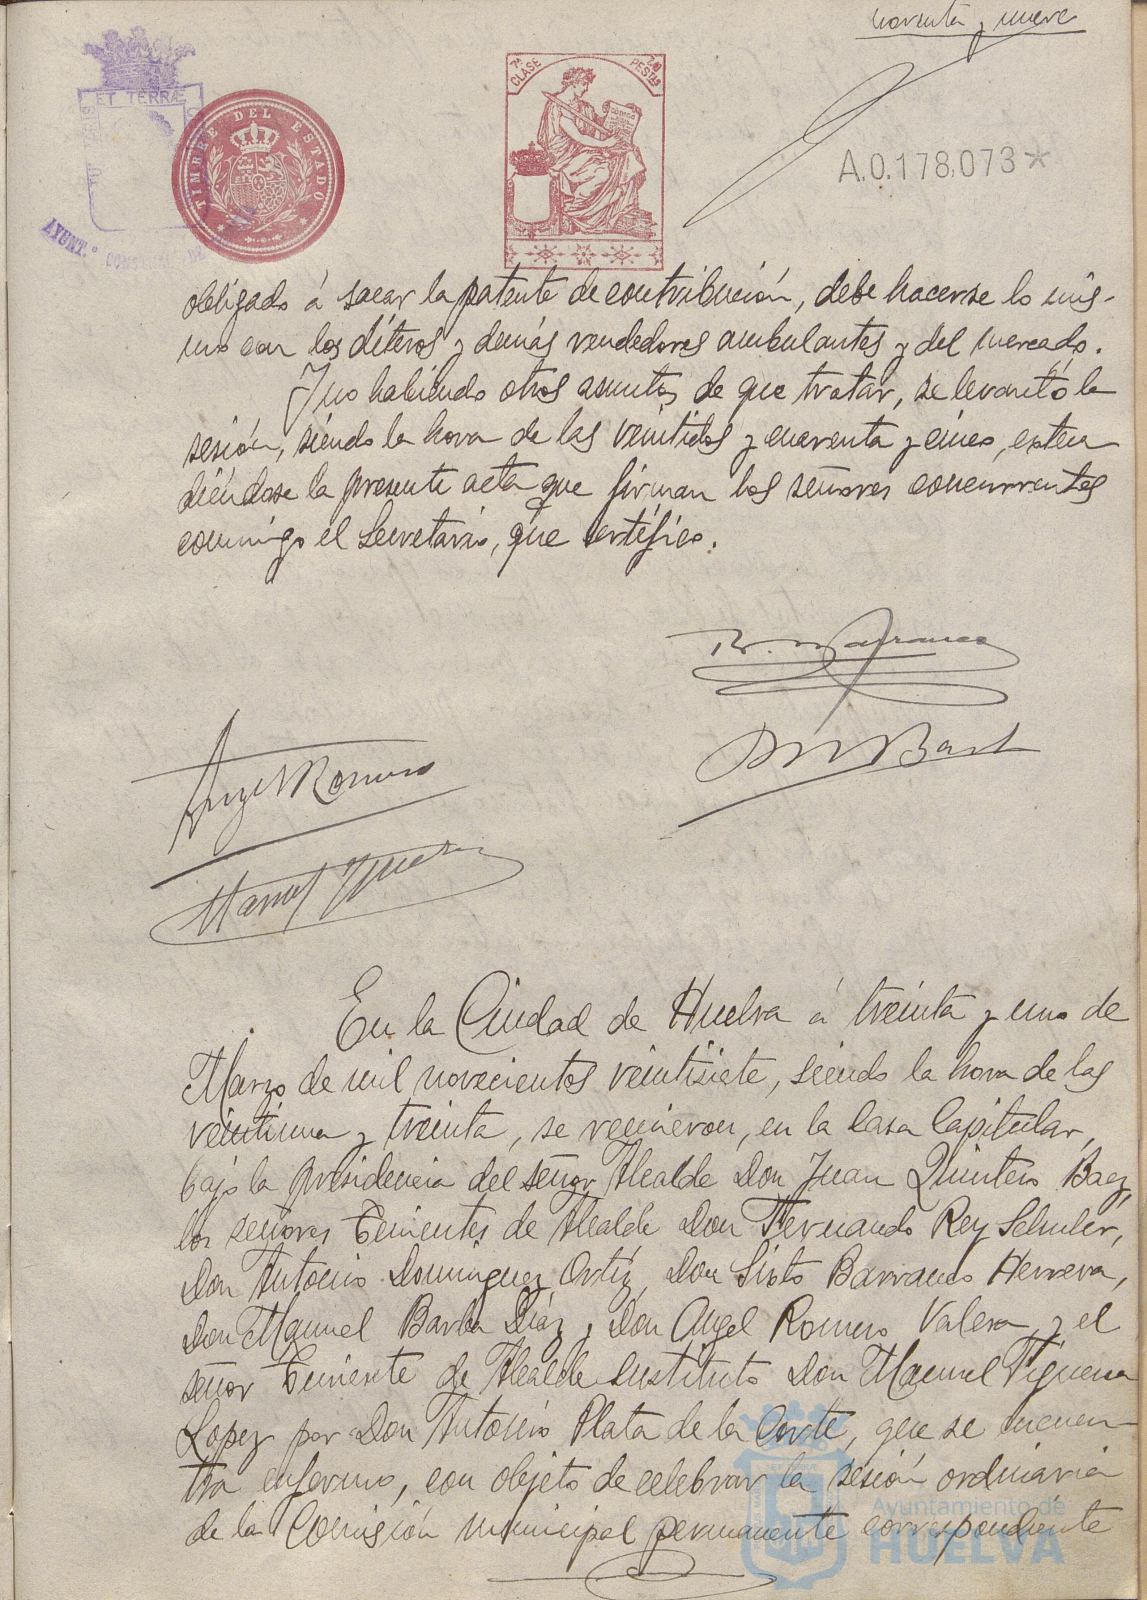 noventa y nueve
ET TERRÆ
TIMBRE DEL ESTADO
7ª CLASE
PESTAS
A.0.178,073*
AYUNT.º CONS DE
obligado á sacar la patente de contribución, debe hacerse lo mis-
mo con los diteros y demás vendedores ambulantes y del mercado.
Y no habiendo otros asuntos de que tratar, se levantó la
sesión, siendo la hora de las veintidos y cuarenta y cinco, exten
diéndose la presente acta que firman los señores concurrentes
conmigo el Secretario, que certifico.
Barb
Angel Romero
Manuel
En la Ciudad de Huelva á treinta y uno de
Marzo de mil novecientos veintisiete, siendo la hora de las
veintiuna y treinta, se reunieron, en la Casa Capitular,
bajo la presidencia del señor Alcalde Don Juan Quintero Baez,
los señores Tenientes de Alcalde Don Fernando Rey Schuler,
Don Antonio Dominguez Ortiz, Don Sixto Barranco Herrera,
Don Manuel Barba Diaz, Don Angel Romero Valera y el
señor Teniente de Alcalde sustituto Don Manuel Figueroa
Lopez por Don Antonio Plata de la Corte, que se encuen
tra enfermo, con objeto de celebrar la sesión ordinaria
de la Comisión municipal permanente correspondiente
Ayuntamiento de
HUELVA